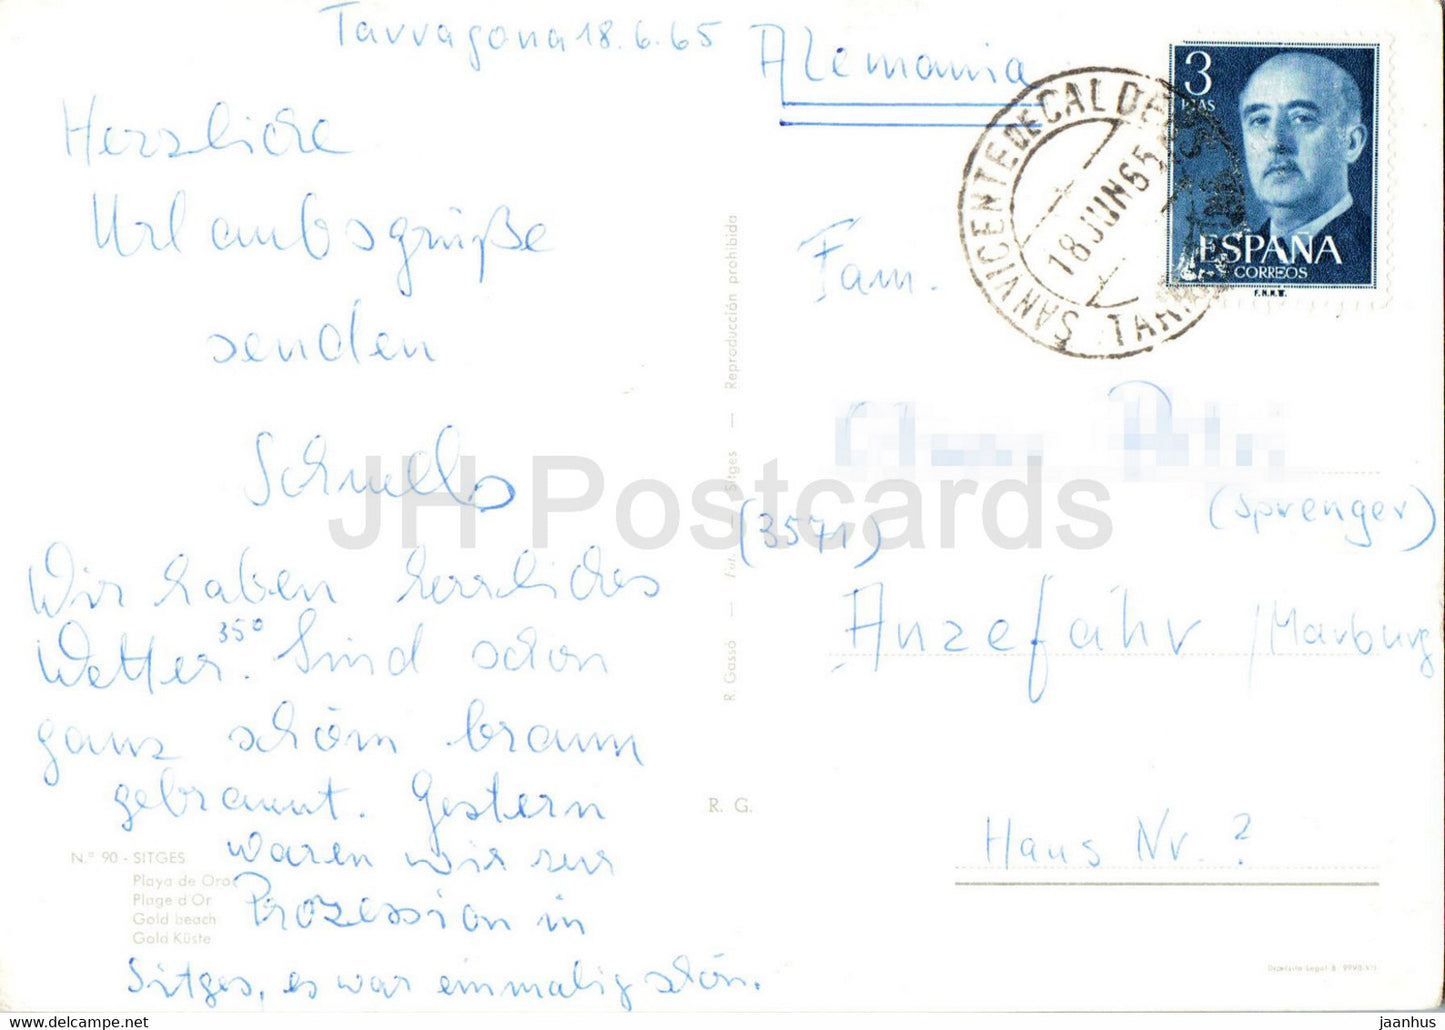 Tarragona 18.6.65
Herzliche
Urlaubsgrüße
senden
Schnells
Wir haben herrliches
Wetter. 35° Sind schon
ganz schön braun
gebrannt. Gestern
waren wir zur
Prozession in
Sitges, es war einmalig schön.
N.º 90 - SITGES
Playa de Oro
Plage d'Or
Gold beach
Gold Küste
R. Gassó — Fot. Sitges — Reproducción prohibida
R. G.
Alemania
SAN VICENTE DE CALDERS
18 JUN 65
3
PTAS
ESPAÑA
CORREOS
F.N.M.T.
Fam.
(Sprenger)
(3571)
Anzefahr / Marburg
Haus Nr. ?
Depósito Legal B. 9990-VII
JH Postcards
jaanhus ~ www.delcampe.net